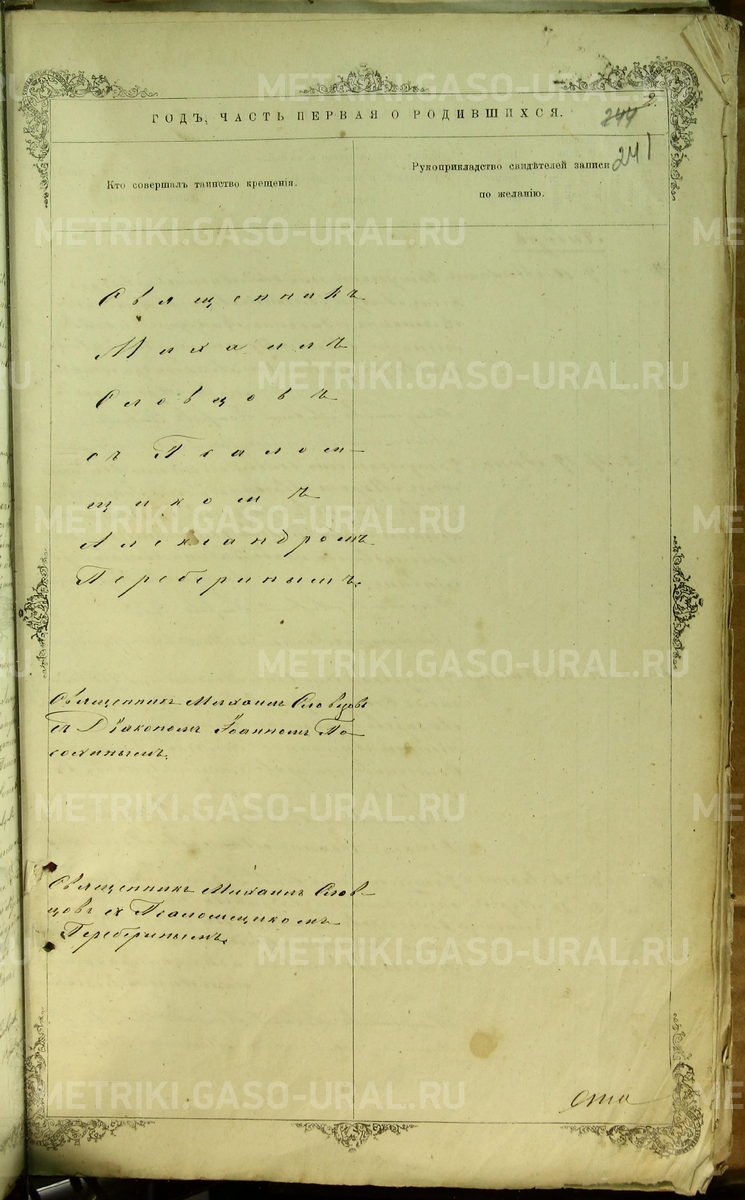 ГОДЪ, ЧАСТЬ ПЕРВАЯ О РОДИВШИХСЯ.
241
Кто совершалъ таинство крещенія.
Рукоприкладство свидѣтелей записи
по желанію.
Священникъ
Михаилъ
Словцовъ
съ Псалом-
щикомъ
Александромъ
Переберинымъ.
Священникъ Михаилъ Словцовъ
съ Діакономъ Іоанномъ По-
Священникъ Михаилъ Слов-
цовъ съ Псаломщикомъ
Переберинымъ.
METRIKI.GASO-URAL.RU